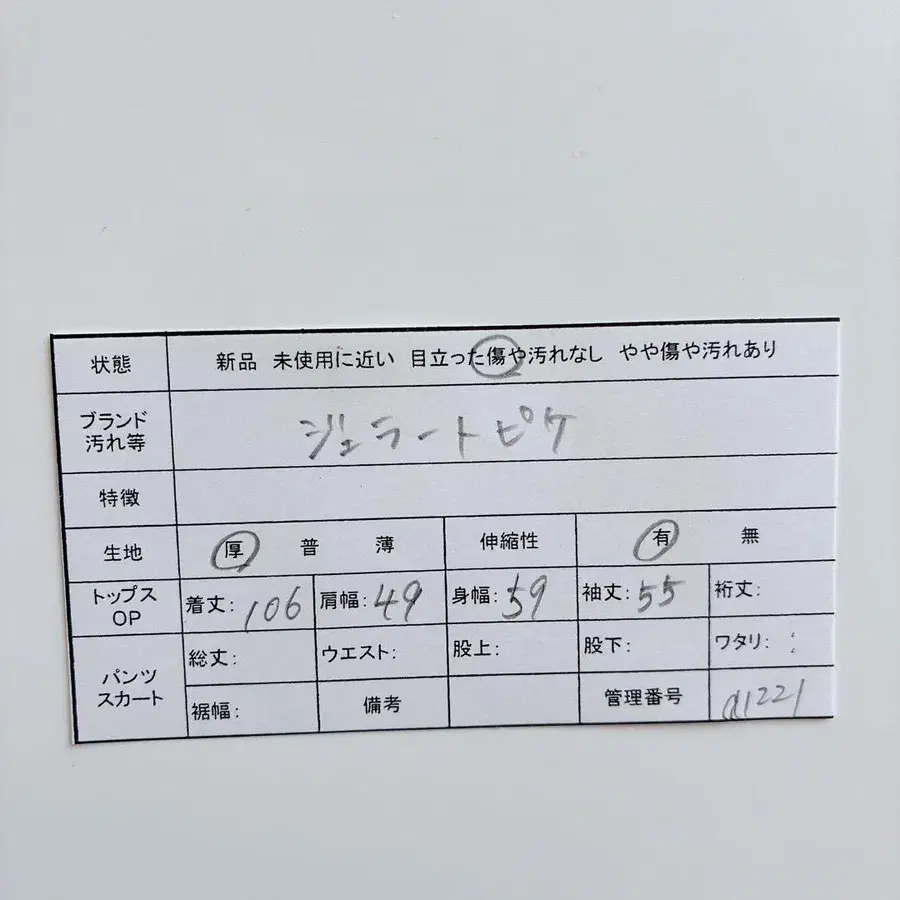 状態 新品 未使用に近い 目立った傷や汚れなし やや傷や汚れあり
ブランド
汚れ等 ジェラートピケ
特徴
生地 厚 普 薄 伸縮性 有 無
トップス
OP 着丈:106 肩幅:49 身幅:59 袖丈:55 裄丈:
パンツ
スカート 総丈: ウエスト: 股上: 股下: ワタリ:
裾幅: 備考 管理番号 d1221